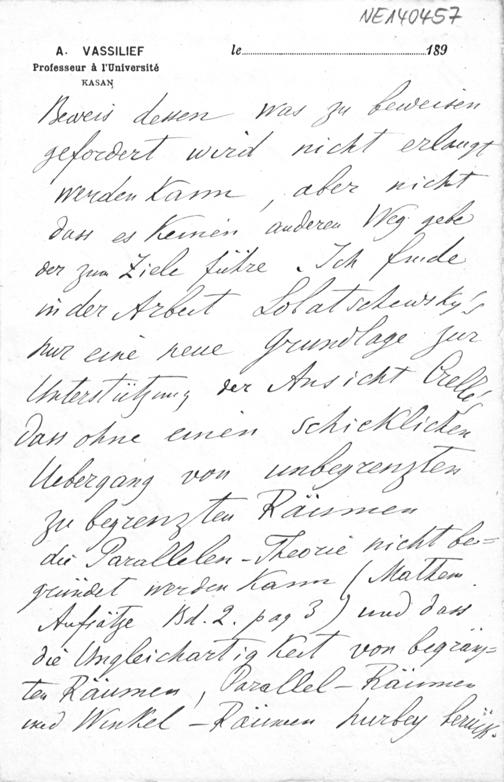 NE140457
A. VASSILIEF
Professeur à l'Université
KASAN
le 189
Beweis dessen was zu beweisen
gefordert wird nicht erlangt
werden kann, aber nicht
dass es keinen anderen Weg gebe
der zum Ziele führe. Ich finde
in der Arbeit Lobatschewsky's
nur eine neue Grundlage zur
Unterstützung der Ansicht Crelle's
dass ohne einen schicklichen
Uebergang von unbegrenzten
zu begrenzten Räumen
die Parallelen-Theorie nicht be=
gründet werden kann (Mathem.
Aufsätze Bd. 2. pag 3) und dass
die Ungleichartigkeit von begränz-
ten Räumen, Parallel-Räumen
und Winkel-Räumen hierbey